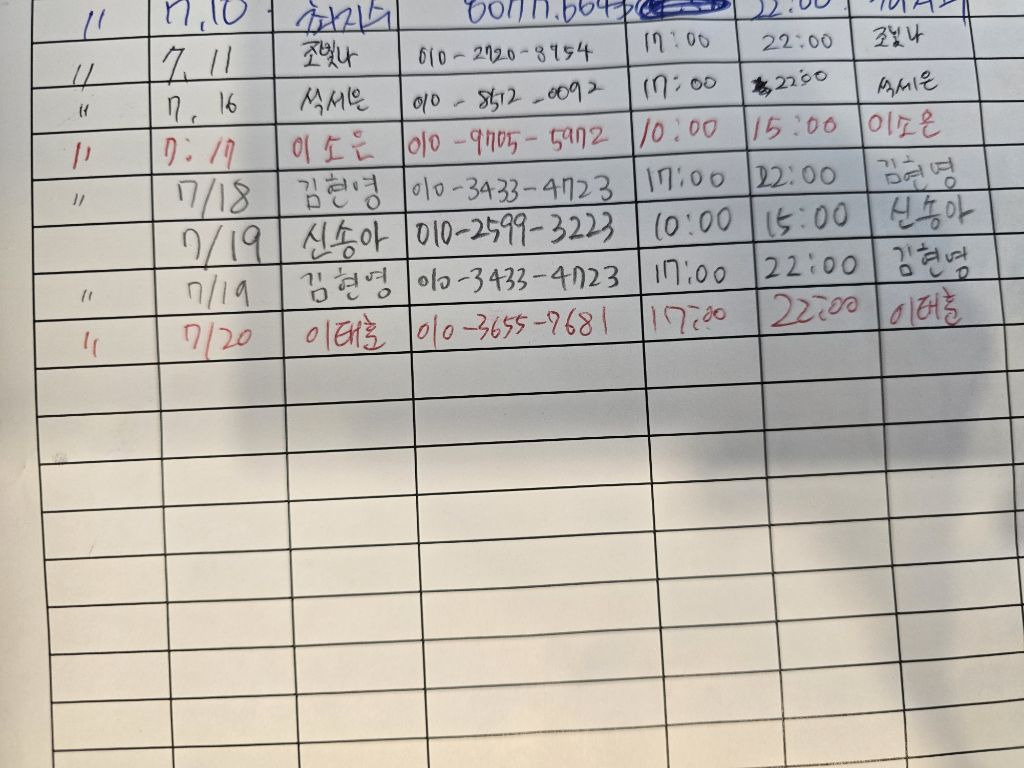 〃 7.10 22:00
〃 7.11 조빛나 010-2720-8954 17:00 22:00 조빛나
〃 7.16 석세은 010-8512-0092 17:00 22:00 석세은
〃 7:17 이소은 010-9705-5972 10:00 15:00 이소은
〃 7/18 김현영 010-3433-4723 17:00 22:00 김현영
7/19 신송아 010-2599-3223 10:00 15:00 신송아
〃 7/19 김현영 010-3433-4723 17:00 22:00 김현영
〃 7/20 이태호 010-3655-7681 17:00 22:00 이태호